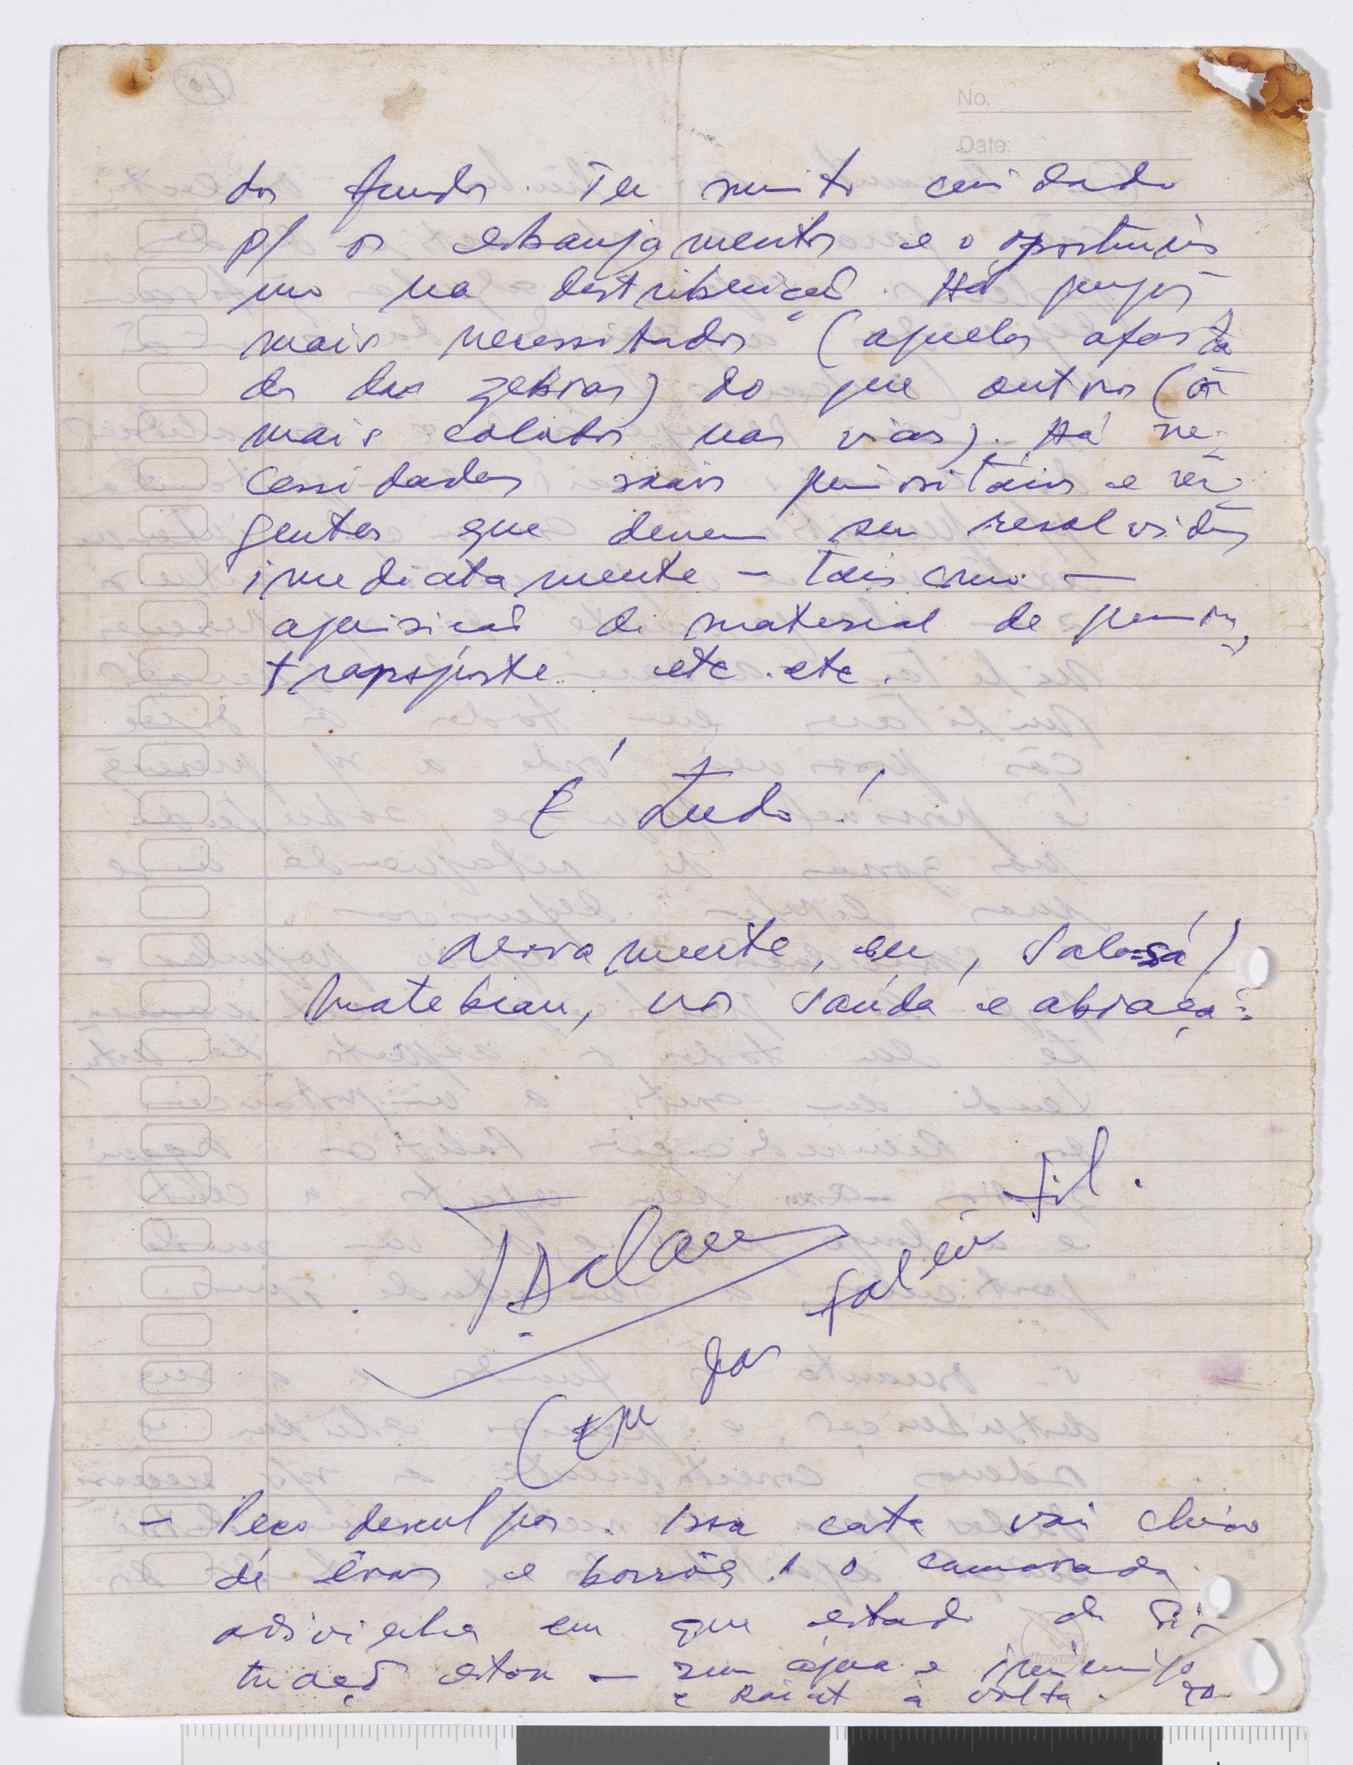 No.
Date:
dos fundos. Ter muito cuidado
p/ os esbanjamentos e o oportunis
mo na distribuição. Há
mais necessitados (aqueles afasta
dos das zebras) do que outros (os
mais colados nas vias). Há ne-
cessidades mais prioritárias e ur-
gentes que devem ser resolvidas
imediatamente - tais como -
aquisição de material de
transporte etc. etc.
É tudo!
Novamente, eu, Sabasá/
Matebian, vos saúda e abraça:
(
por Falintil.
- Peço desculpas. Essa carta vai cheia
de erros e borrões. O camarada
adivinha em que estado de si-
tuação estou - sem água e inimigo
e à volta.